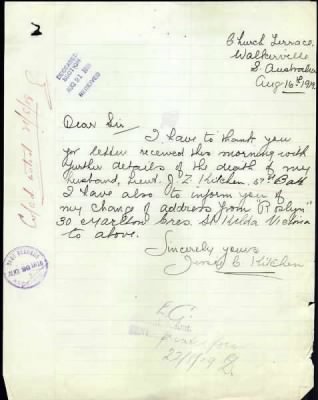 2
Church Terrace,
Walkerville
S. Australia
Aug 16th 1919
DECEASED
SECTION
AUG 21 1919
RECEIVED
Dear Sir
I have to thank you
for letter received this morning with
further details of the death of my
husband, Lieut. J Z Kitchen, 57th Batt
I have also to inform you of
my change of address from "Roslyn"
30 Marlton Cres. St Kilda Victoria
to above.
Sincerely yours
C Kitchen
E.C.